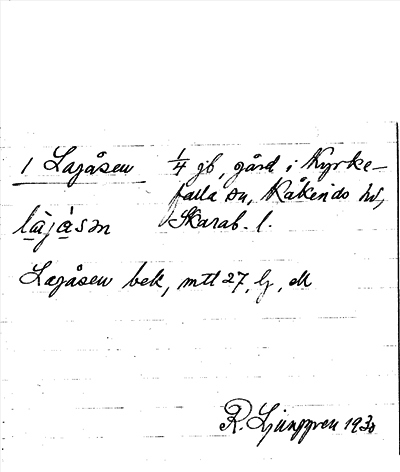 1 Lagåsen 1/4 jb, gård i Kyrke-
falla sn, Kåkinds hd,
Skarab. l.
làjá·sən
Lagåsen bek, mtl 27, lj, ek
R. Ljunggren 1930